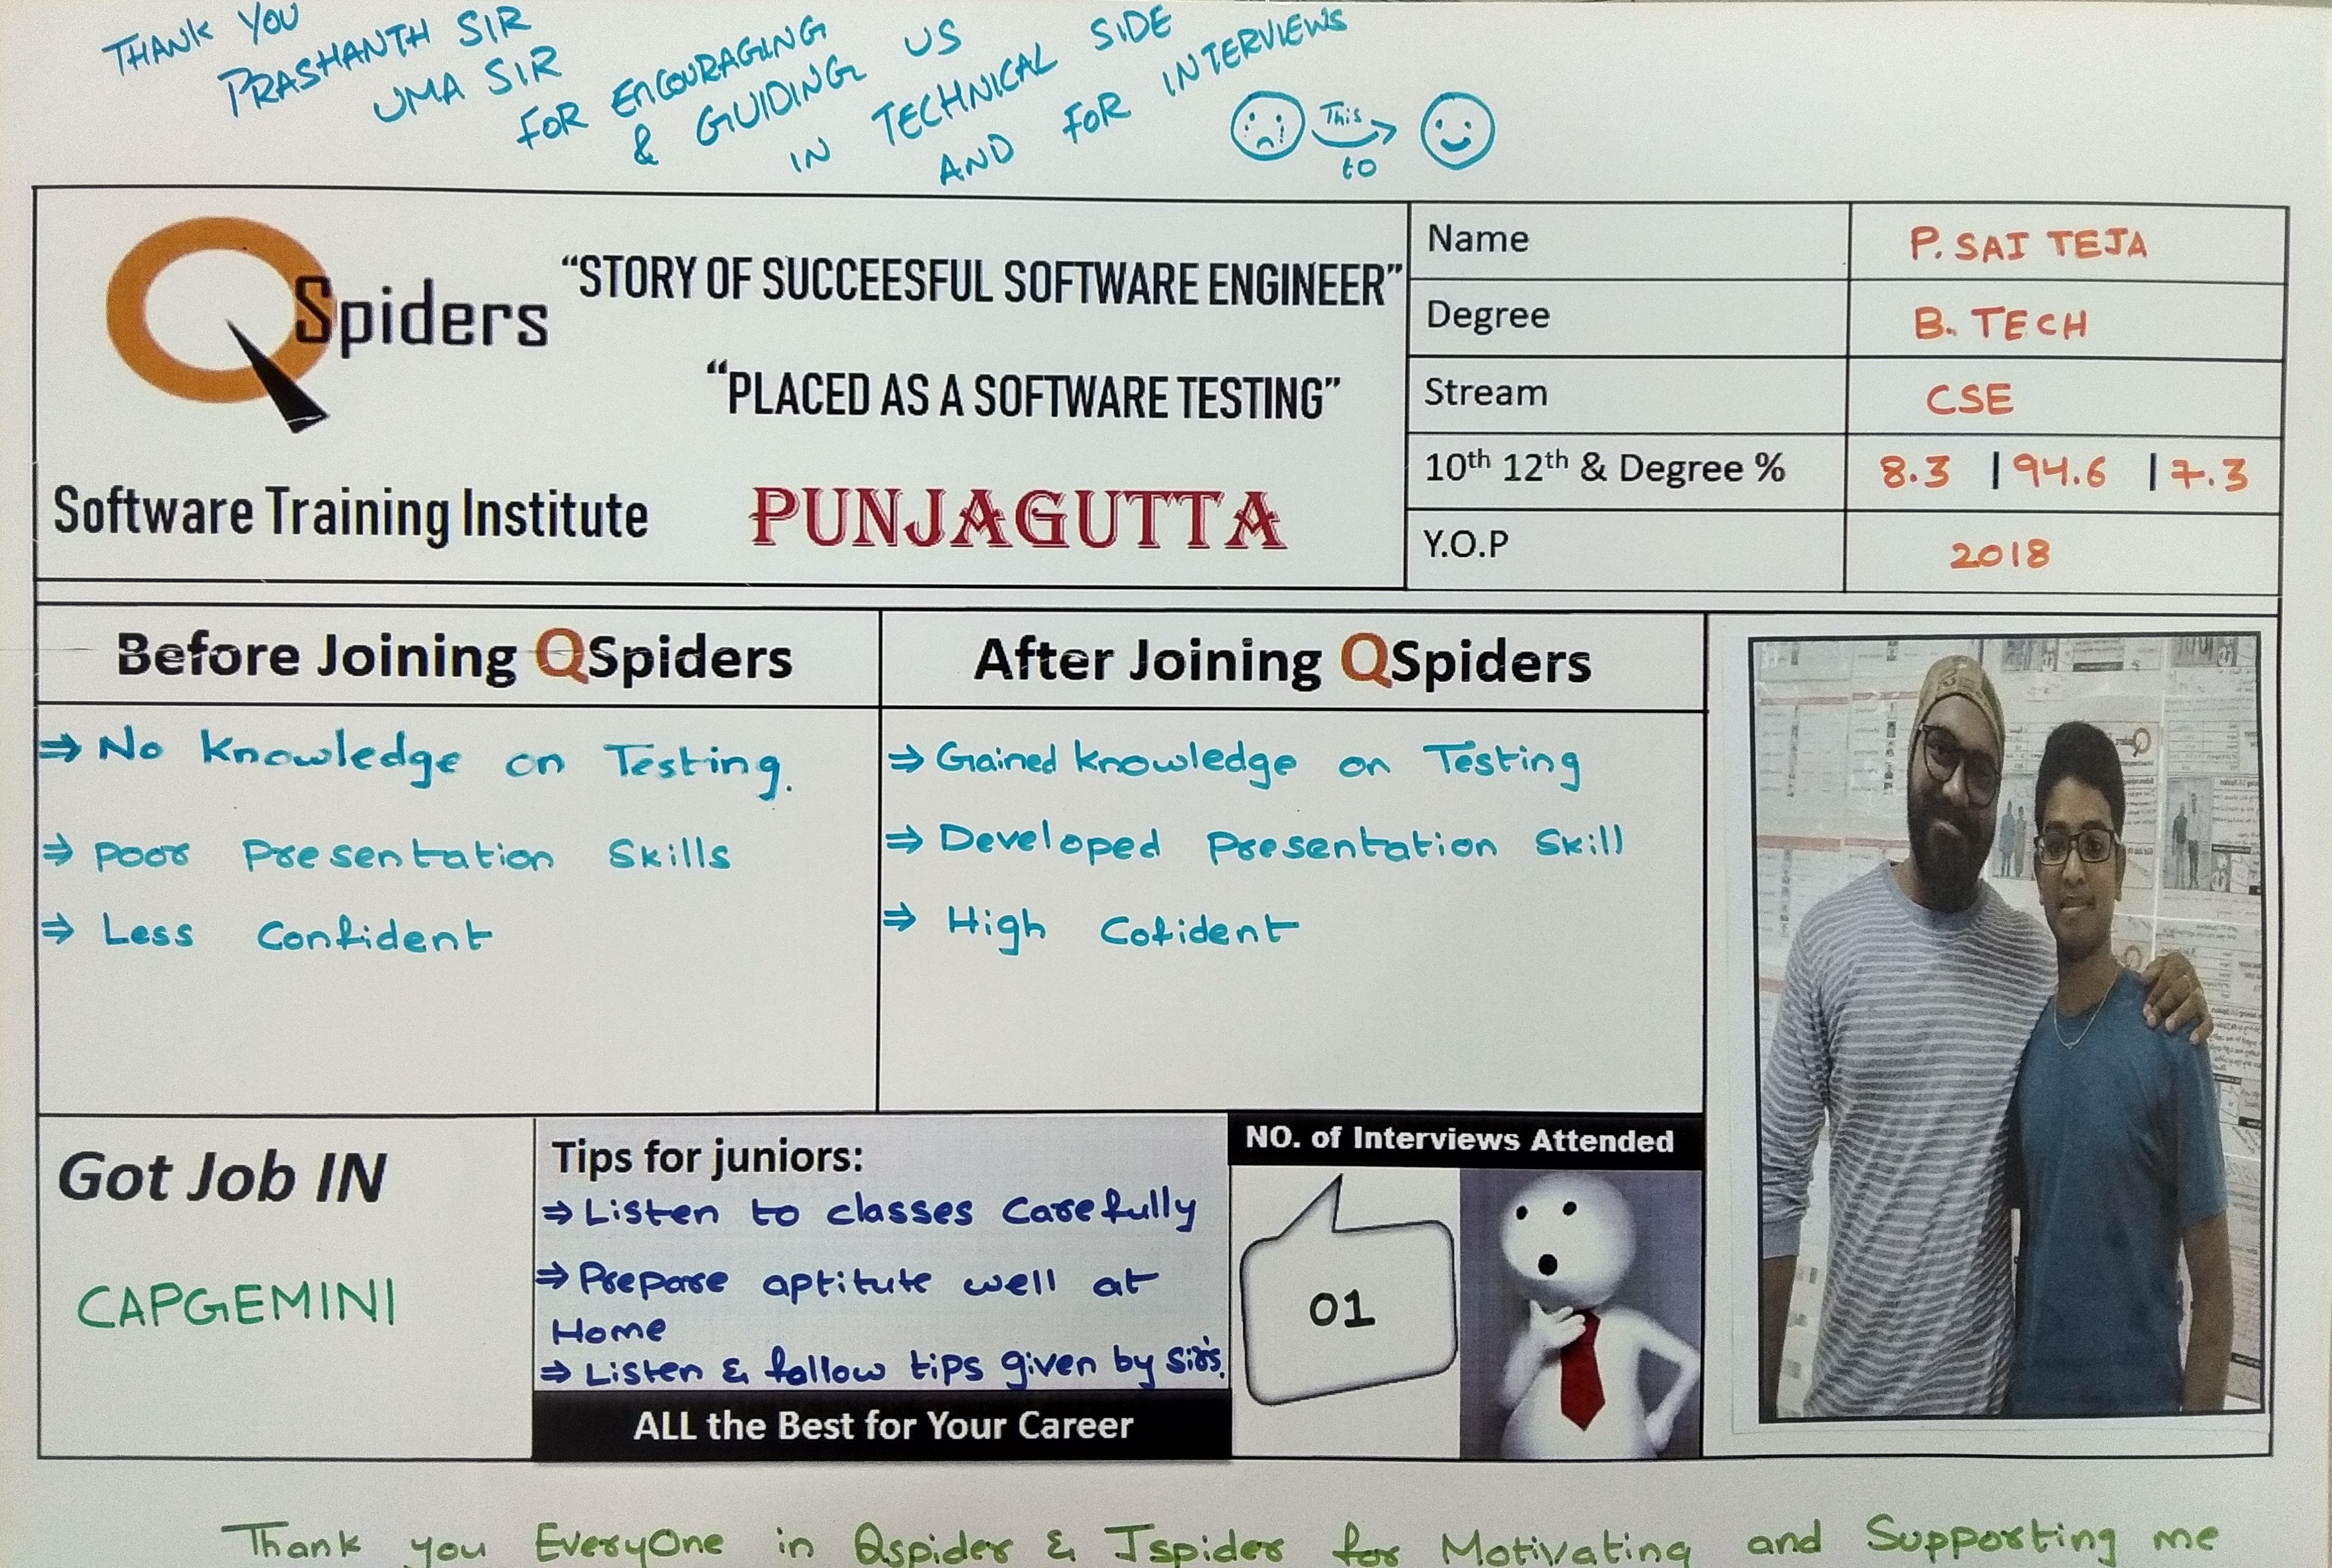 THANK YOU
PRASHANTH SIR
UMA SIR
FOR ENCOURAGING
& GUIDING US
IN TECHNICAL SIDE
AND FOR INTERVIEWS
This
to
QSpiders
"STORY OF SUCCEESFUL SOFTWARE ENGINEER"
"PLACED AS A SOFTWARE TESTING"
Software Training Institute
PUNJAGUTTA
Name P. SAI TEJA
Degree B. TECH
Stream CSE
10th 12th & Degree % 8.3 | 94.6 | 7.3
Y.O.P 2018
Before Joining QSpiders
⇒ No Knowledge on Testing.
⇒ Poor Presentation Skills
⇒ Less Confident
After Joining QSpiders
⇒ Gained knowledge on Testing
⇒ Developed Presentation Skill
⇒ High Cofident
Got Job IN
CAPGEMINI
Tips for juniors:
⇒ Listen to classes Carefully
⇒ Prepare aptitute well at
Home
⇒ Listen & follow tips given by sir's.
ALL the Best for Your Career
NO. of Interviews Attended
01
Thank you EveryOne in Qspider & Jspider for Motivating and Supporting me